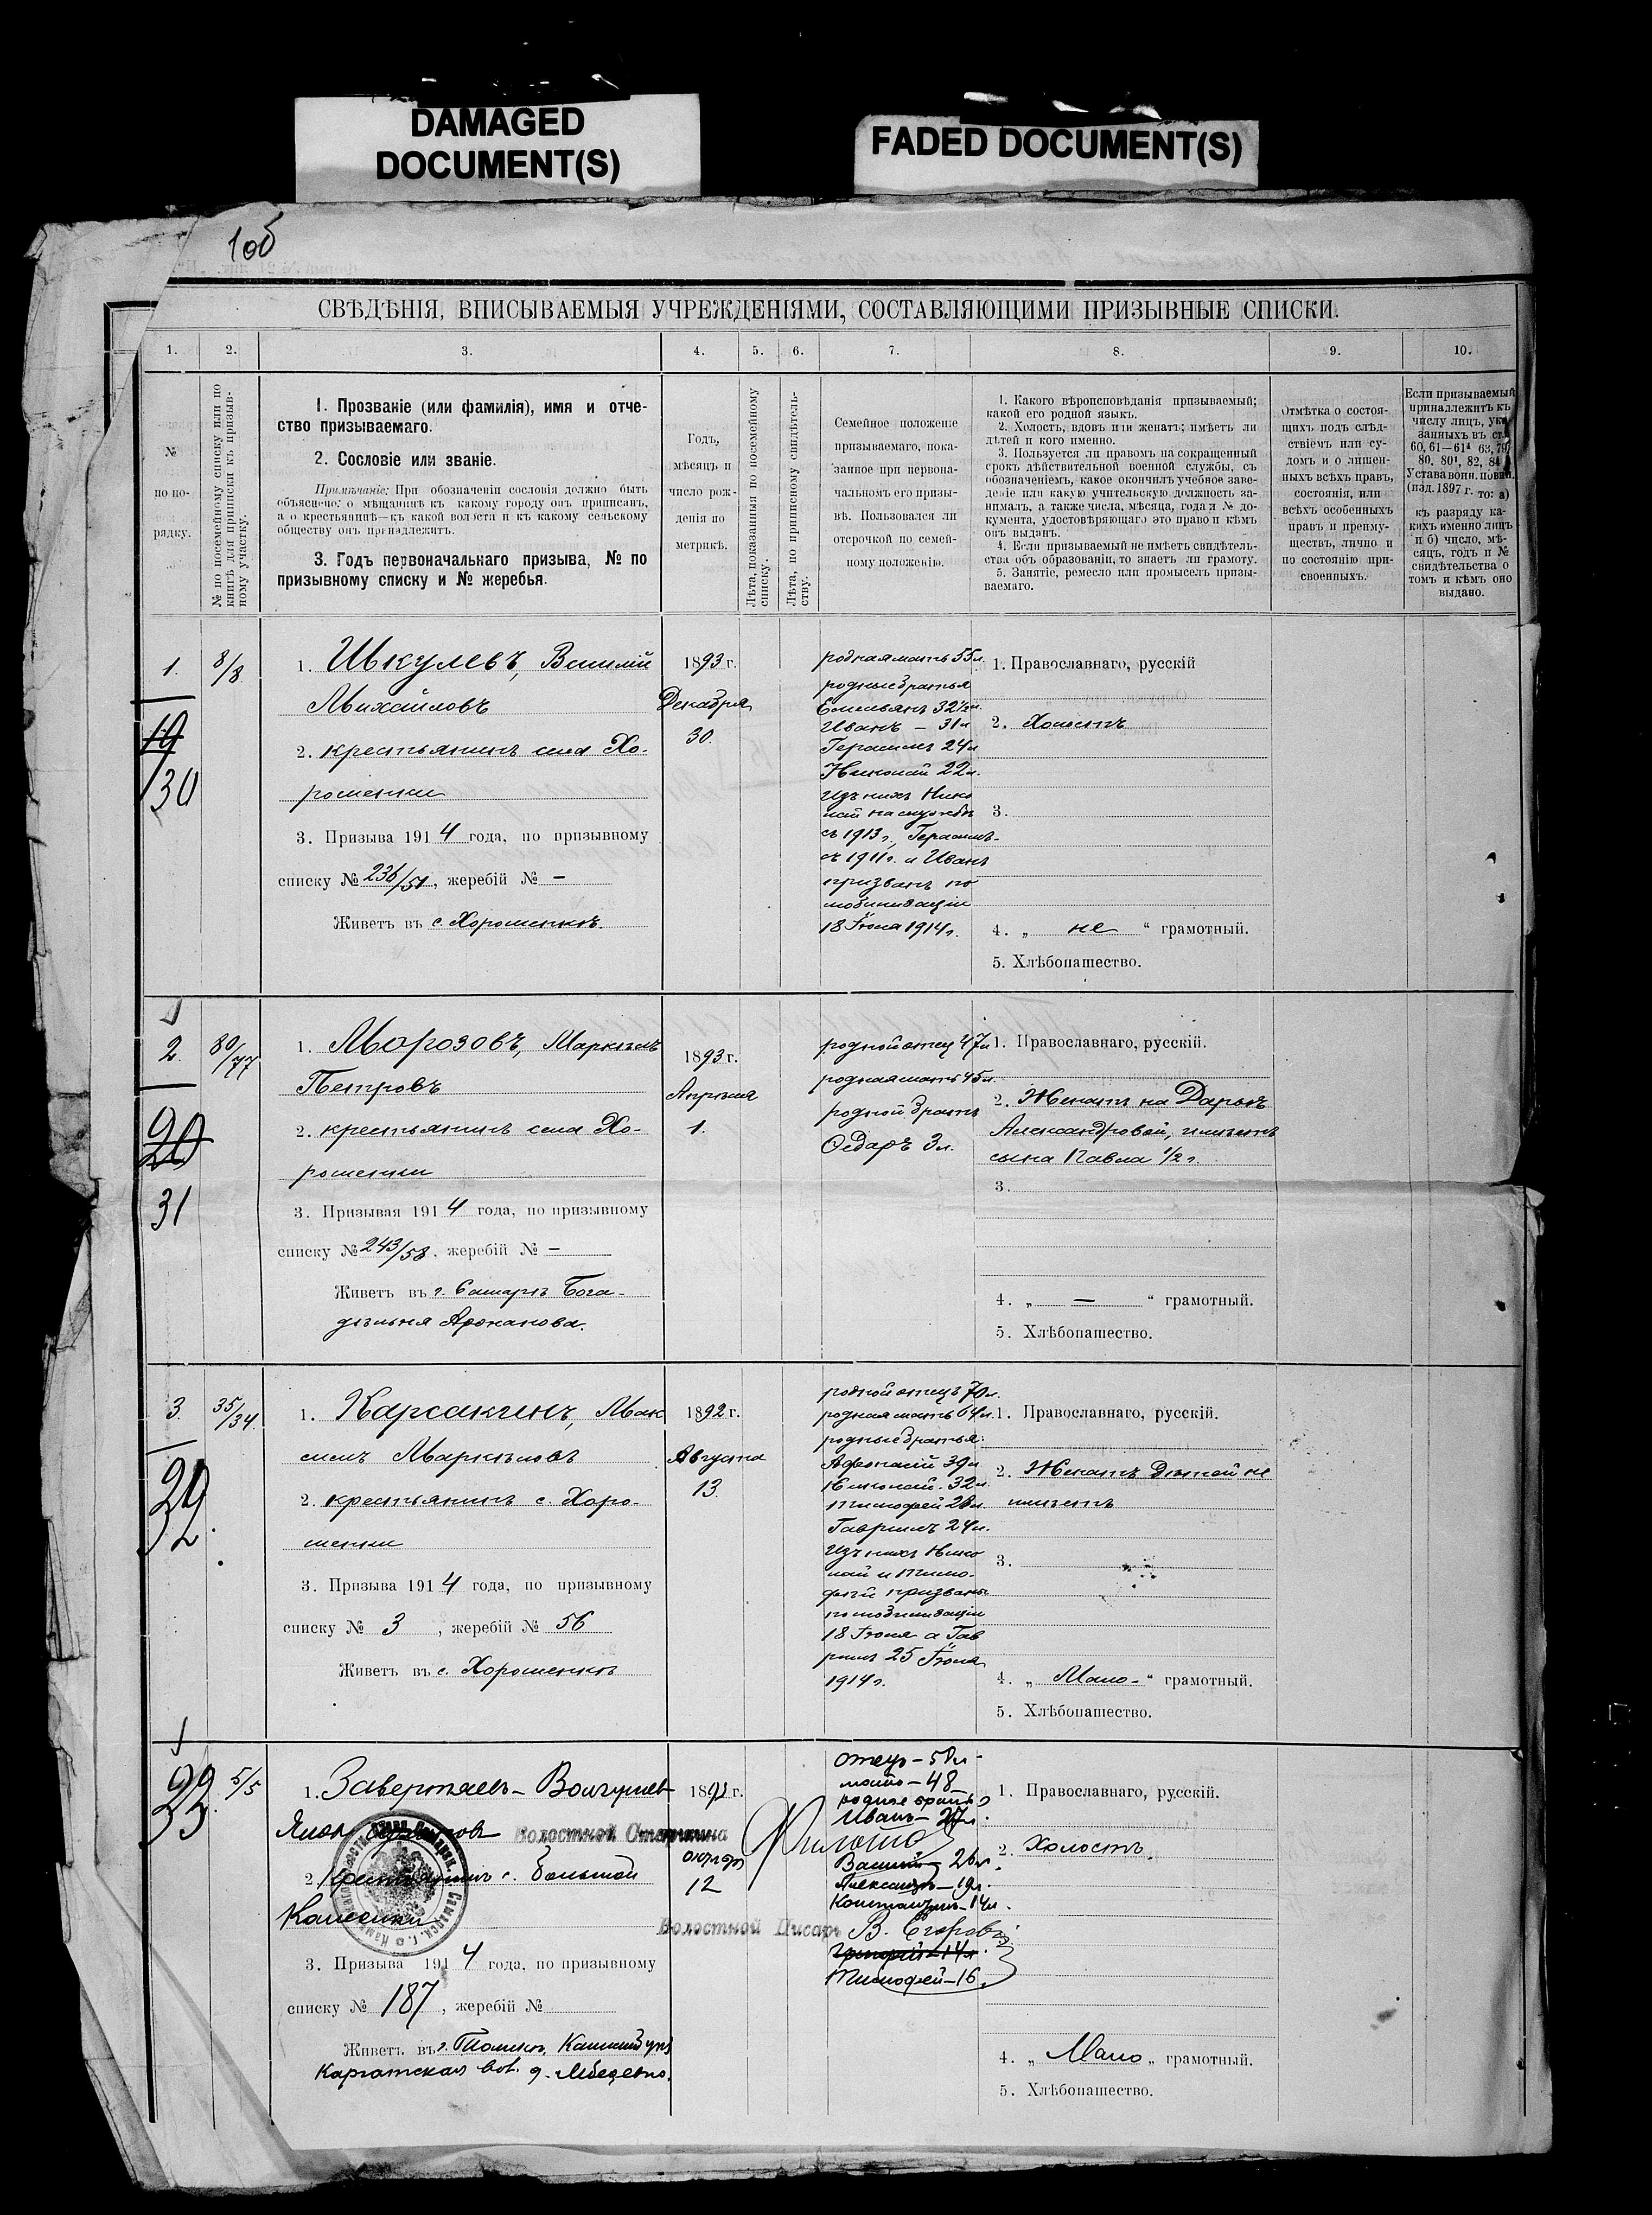 DAMAGED
DOCUMENT(S)
FADED DOCUMENT(S)
10об
СВѢДѢНІЯ, ВПИСЫВАЕМЫЯ УЧРЕЖДЕНІЯМИ, СОСТАВЛЯЮЩИМИ ПРИЗЫВНЫЕ СПИСКИ.
1. 2. 3. 4. 5. 6. 7. 8. 9. 10.
№
по по-
рядку.
№ по посемейному списку или по
книгѣ для приписки къ призыв-
ному участку.
1. Прозваніе (или фамилія), имя и отче-
ство призываемаго.
2. Сословіе или званіе.
Примѣчаніе: При обозначеніи сословія должно быть
объяснено: о мѣщанинѣ къ какому городу онъ приписанъ,
а о крестьянинѣ—къ какой волости и къ какому сельскому
обществу онъ принадлежитъ.
3. Годъ первоначальнаго призыва, № по
призывному списку и № жеребья.
Годъ,
мѣсяцъ и
число рож-
денія по
метрикѣ.
Лѣта, показанныя по посемейному
списку.
Лѣта, по приписному свидѣтель-
ству.
Семейное положеніе
призываемаго, пока-
занное при первона-
чальномъ его призы-
вѣ. Пользовался ли
отсрочкой по семей-
ному положенію.
1. Какого вѣроисповѣданія призываемый;
какой его родной языкъ.
2. Холостъ, вдовъ или женатъ; имѣетъ ли
дѣтей и кого именно.
3. Пользуется ли правомъ на сокращенный
срокъ дѣйствительной военной службы, съ
обозначеніемъ, какое окончилъ учебное заве-
деніе или какую учительскую должность за-
нималъ, а также числа, мѣсяца, года и № до-
кумента, удостовѣряющаго это право и кѣмъ
онъ выданъ.
4. Если призываемый не имѣетъ свидѣтель-
ства объ образованіи, то знаетъ ли грамоту.
5. Занятіе, ремесло или промыселъ призы-
ваемаго.
Отмѣтка о состоя-
щихъ подъ слѣд-
ствіемъ или су-
домъ и о лишен-
ныхъ всѣхъ правъ,
состоянія, или
всѣхъ особенныхъ
правъ и преиму-
ществъ, лично и
по состоянію при-
своенныхъ.
Если призываемый
принадлежитъ къ
числу лицъ, ука-
занныхъ въ ст.
60, 61—61¹ 63, 79,
80, 80¹, 82, 84
Устава воин. повин.
(изд. 1897 г. то: а)
къ разряду ка-
кихъ именно лицъ
и б) число, мѣ-
сяцъ, годъ и №
свидѣтельства о
томъ и кѣмъ оно
выдано.
1.
19
30
8/8.
1. Швкулевъ, Василій
Михайловъ
2. крестьянинъ села Хо-
рошенки
3. Призыва 1914 года, по призывному
списку № 236/51, жеребій № —
Живетъ въ с. Хорошенкѣ.
1893 г.
Декабря
30.
родная мать 55л.
родные братья
Емельянъ 32½л.
Иванъ — 31л
Герасимъ 24л
Николай 22л.
Изъ нихъ Нико
лай на службѣ
съ 1913г., Герасимъ-
съ 1911г. и Иванъ
призванъ по
мобилизаціи
18 Іюля 1914г.
1. Православнаго, русскій
2. Холостъ
3.
4. „ не “ грамотный.
5. Хлѣбопашество.
2.
20
31
80/77
1. Морозовъ, Маркелъ
Петровъ
2. крестьянинъ села Хо-
рошенки
3. Призывая 1914 года, по призывному
списку № 243/58, жеребій № —
Живетъ въ г. Самарѣ Бога-
дѣльня Аржанова.
1893 г.
Апрѣля
1.
родной отец 47л
родная мать 45л.
родной братъ
Ѳедоръ 3л.
1. Православнаго, русскій.
2. Женатъ на Дарьѣ
Александровой, имѣетъ
сына Павла 1/2 г.
3.
4. „ — “ грамотный.
5. Хлѣбопашество.
3.
32
35/34.
1. Карсакинъ, Мак
симъ Маркѣловъ
2. крестьянинъ с. Хоро-
шенки
3. Призыва 1914 года, по призывному
списку № 3, жеребій № 56
Живетъ въ с. Хорошенкѣ
1892 г.
Августа
13.
родной отецъ 70л.
родная мать 64л.
родные братья:
Афонасій 39л
Николай. 32л
Тимофей 28л.
Гаврилъ 24л.
Изъ нихъ Нико
лай и Тимо-
фей призваны
по мобилизаціи
18 Іюля а Гав
рилъ 25 Іюля
1914г.
1. Православнаго, русскій.
2. Женатъ Дѣтей не
имѣетъ
3.
4. „ Мало- “ грамотный.
5. Хлѣбопашество.
33.
5/5
1. Завертяевъ-
Волостной Старшина
2. Крестьянинъ с. Большой
Каменки
3. Призыва 1914 года, по призывному
списку № 187, жеребій №
Живетъ въ
Каргатская вол. д.
189 г.
12
Волостной Писарь В. Егоровъ
отецъ — 50л -
мать — 48
родные братья
Иванъ — 27л.
Василій — 26л.
Александръ — 19л.
Константинъ — 14л.
Григорій — 14л.
Тимофей — 16.
1. Православнаго, русскій.
2. Холостъ.
4. „ Мало „ грамотный.
5. Хлѣбопашество.